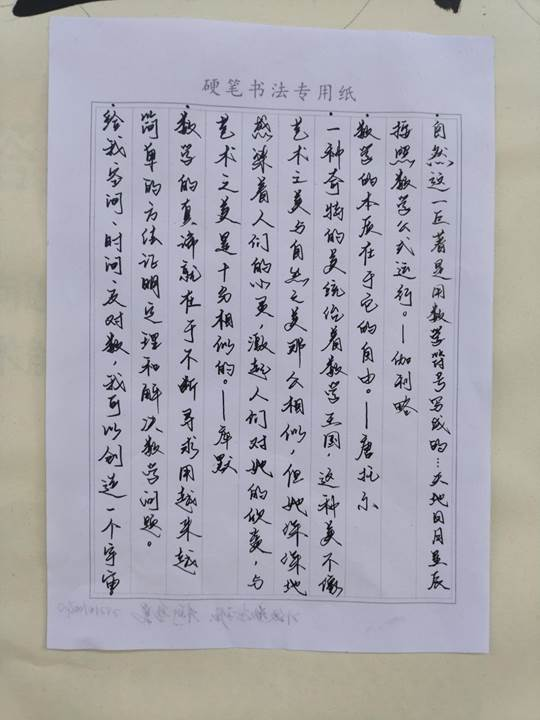 硬笔书法专用纸
·自然这一巨著是用数学符号写成的…天地日月星辰
按照数学公式运行。—伽利略
·数学的本质在于它的自由。—康托尔
·一种奇特的美统治着数学王国，这种美不像
艺术之美与自然之美那么相似，但她深深地
感染着人们的心灵，激起人们对她的欣赏，与
艺术之美是十分相似的。—库默
·数学的真谛就在于不断寻求用越来越
简单的方法证明定理和解决数学问题。
·给我空间、时间、反对数 我可以创造一个宇宙